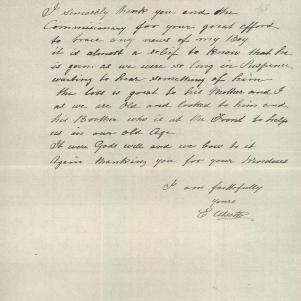 I sincerely thank you and the
Commissionary for your great effort
to trace any news of my Boy
it is almost a relief to know that he
is gone. as we were so long in Suspence
waiting to hear something of him
the loss is great to his Mother and I
as we are Old and looked to him and
his Brother who is at the Front to help
us in our old Age.
It were Gods will and we bow to it
Again thanking you for your Kindness
I am faithfully
yours
E